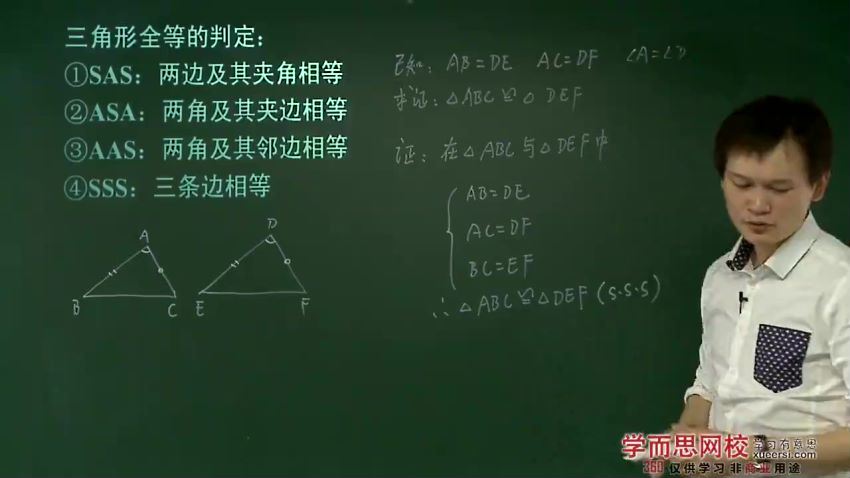 三角形全等的判定：
①SAS：两边及其夹角相等
②ASA：两角及其夹边相等
③AAS：两角及其邻边相等
④SSS：三条边相等
已知：AB=DE AC=DF ∠A=∠D
求证：△ABC≌△DEF
证：在△ABC与△DEF中
AB=DE
AC=DF
BC=EF
∴△ABC≌△DEF(S.S.S)
A
D
B
C
E
F
学而思网校
学习有意思
xueersi.com
360仅供学习非商业用途